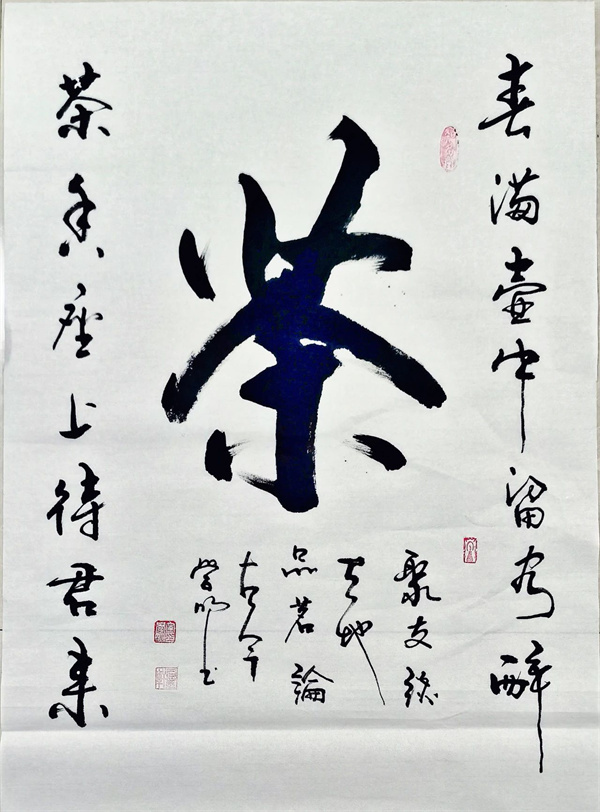 春满壶中留客醉
茶
茶香座上待君来
聚友谈
天地
品茗論
古今
明书